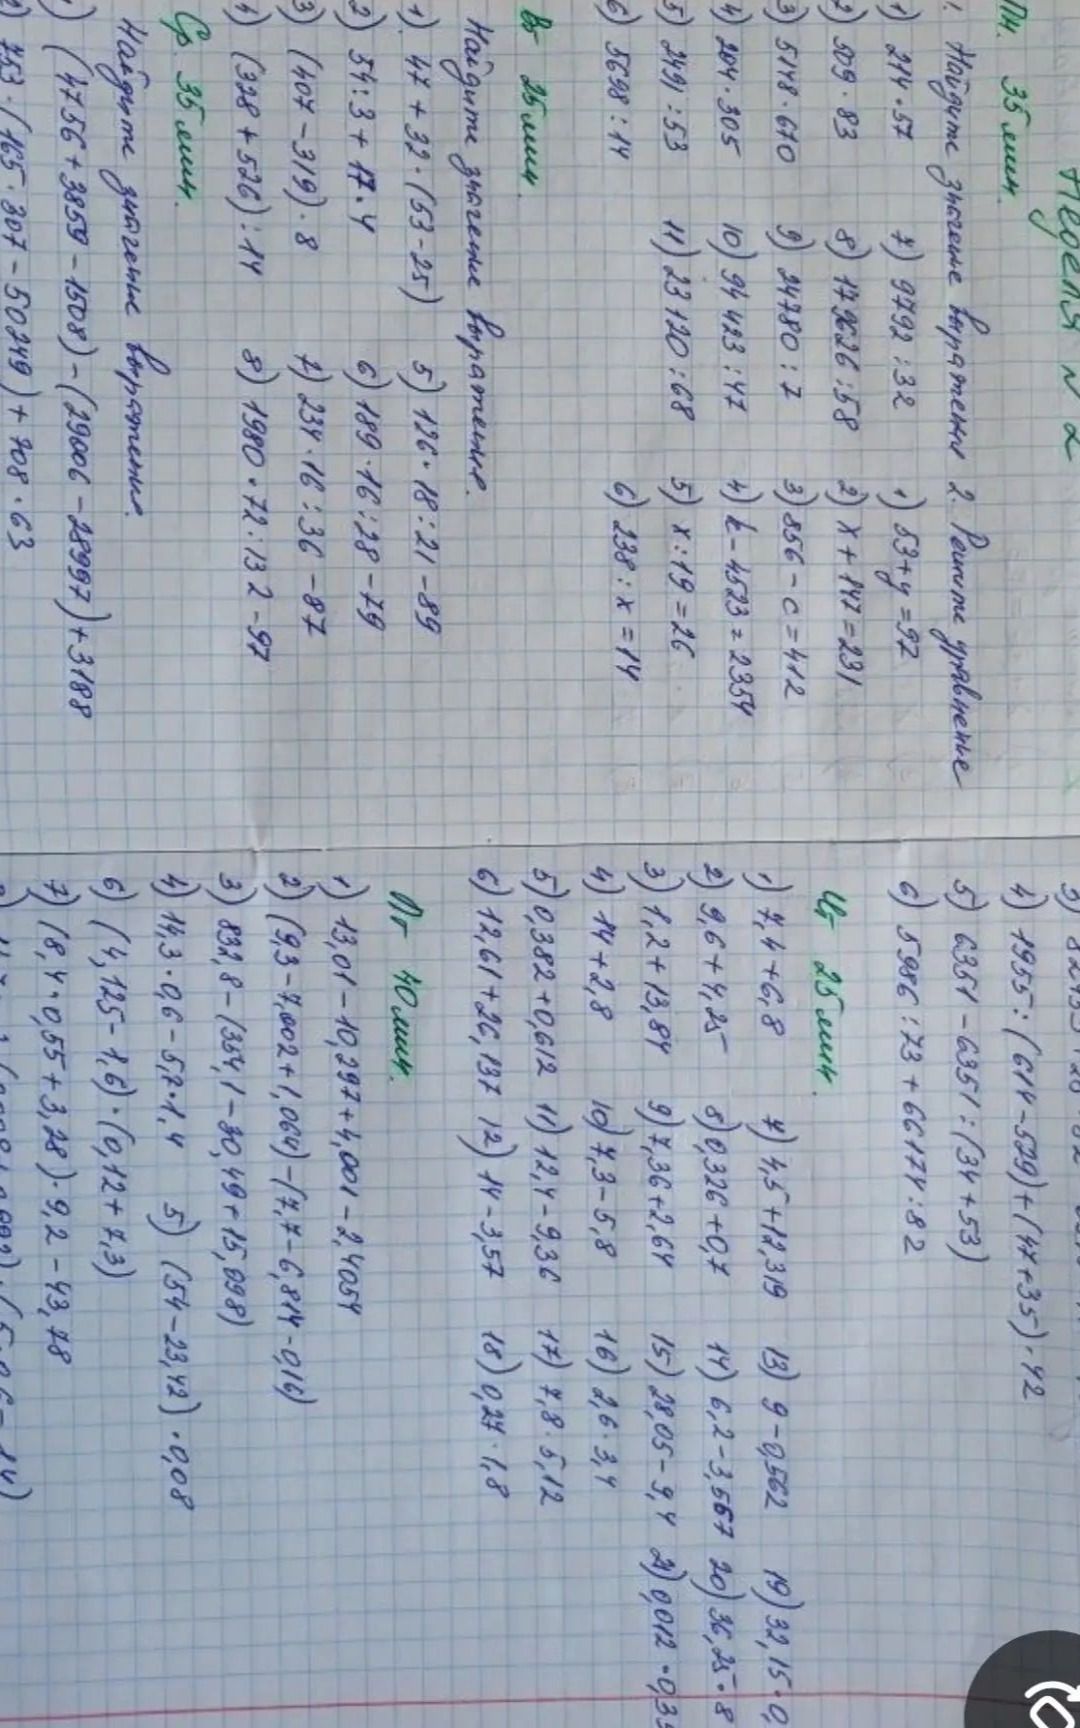 Неделя № 2
Пн. 35 мин.
1. Найдите значение выражени
1) 244·57
2) 509·83
3) 5148·670
4) 204·305
5) 2491:53
6) 5698:14
7) 9792:32
8) 17626:58
9) 24780:7
10) 94423:47
11) 23120:68
2. Решите уравнение
1) 53+y=97
2) x+147=231
3) 856-c=412
4) k-4523=2354
5) x:19=26
6) 238:x=14
Вт 25 мин.
Найдите значение выражения.
1) 47+32·(53-25)
2) 54:3+17·4
3) (407-319)·8
4) (328+526):14
5) 126·18:21-89
6) 189·16:28-79
7) 234·16:36-87
8) 1980·72:132-97
Ср. 35 мин.
Найдите значение выражение.
1) (4756+3859-1508)-(29006-28997)+3188
753·(165·307-50249)+708·63
4) 1955:(614-529)+(47+35)·42
5) 6351-6351:(34+53)
6) 5986:73+66174:82
Чт 25 мин.
1) 7,4+6,8
2) 9,6+4,25
3) 1,2+13,84
4) 14+2,8
5) 0,382+0,612
6) 12,61+26,137
7) 4,5+12,319
8) 0,326+0,7
9) 7,36+2,64
10) 7,3-5,8
11) 12,4-9,36
12) 14-3,57
13) 9-0,562
14) 6,2-3,567
15) 28,05-9,4
16) 2,6·3,4
17) 7,8·5,12
18) 0,24·1,8
19) 32,15·0,
20) 36,25·8
21) 0,012·0,35
Пт 40 мин.
1) 13,01-10,297+4,001-2,4054
2) (9,3-7,002+1,064)-(7,7-6,814-0,16)
3) 832,8-(354,1-30,49+15,698)
4) 14,3·0,6-5,7·1,4
5) (54-23,42)·0,08
6) (4,125-1,6)·(0,12+7,3)
7) (8,4·0,55+3,28)·9,2-43,78